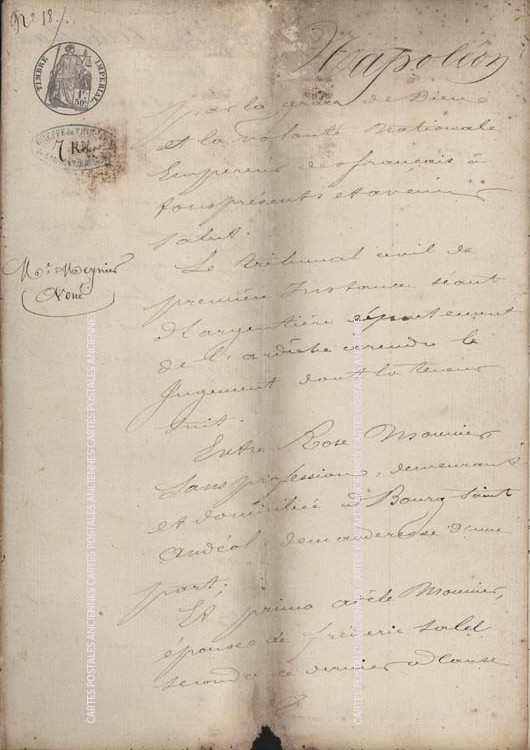 N° 18.
TIMBRE IMPERIAL
1F
50c
7
Mr. Meynier
Napoléon
par la grâce de Dieu
et la volonté Nationale
Empereur des français à
tous présents et avenir
Salut.
Le tribunal civil de
première Instance séant
à Largentière département
de l'ardèche a rendu le
Jugement dont la teneur
suit.
Entre Rose Mounier,
sans profession, demeurant
et domiciliée à Bourg Saint
Andéol, demanderesse d'une
part;
Et primo Mounier,
épouse de fréderic
secondo ce dernier
CARTES POSTALES ANCIENNES CARTES POSTALES ANCIENNES CARTES POSTALES ANCIENNES
CARTES POSTALES ANCIENNES CARTES POSTALES ANCIENNES CARTES POSTALES ANCIENNES